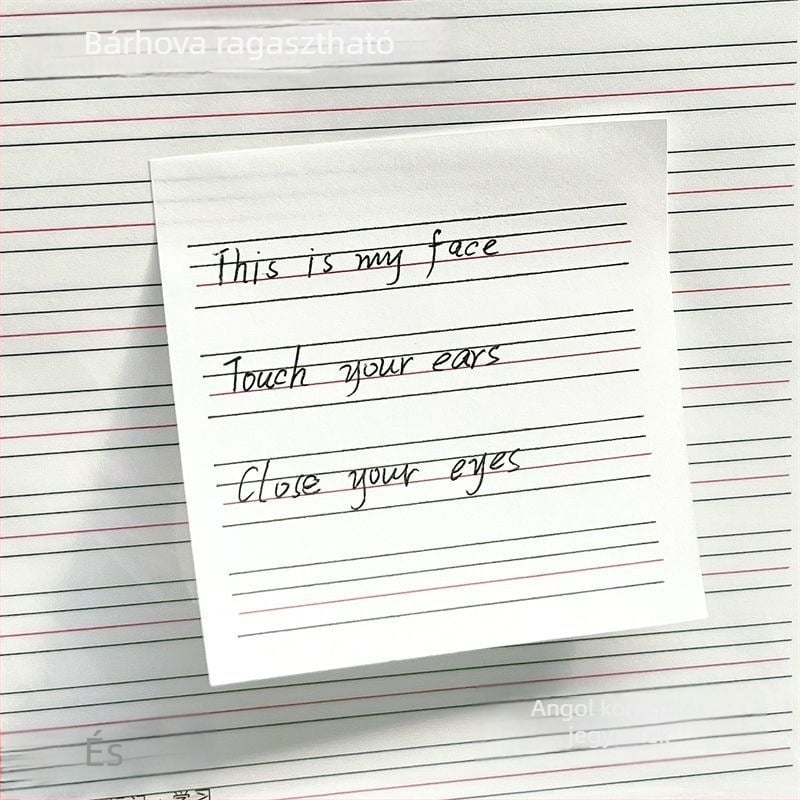 Bárhova ragasztható
This is my face
Touch your ears
Close your eyes
Angol
És